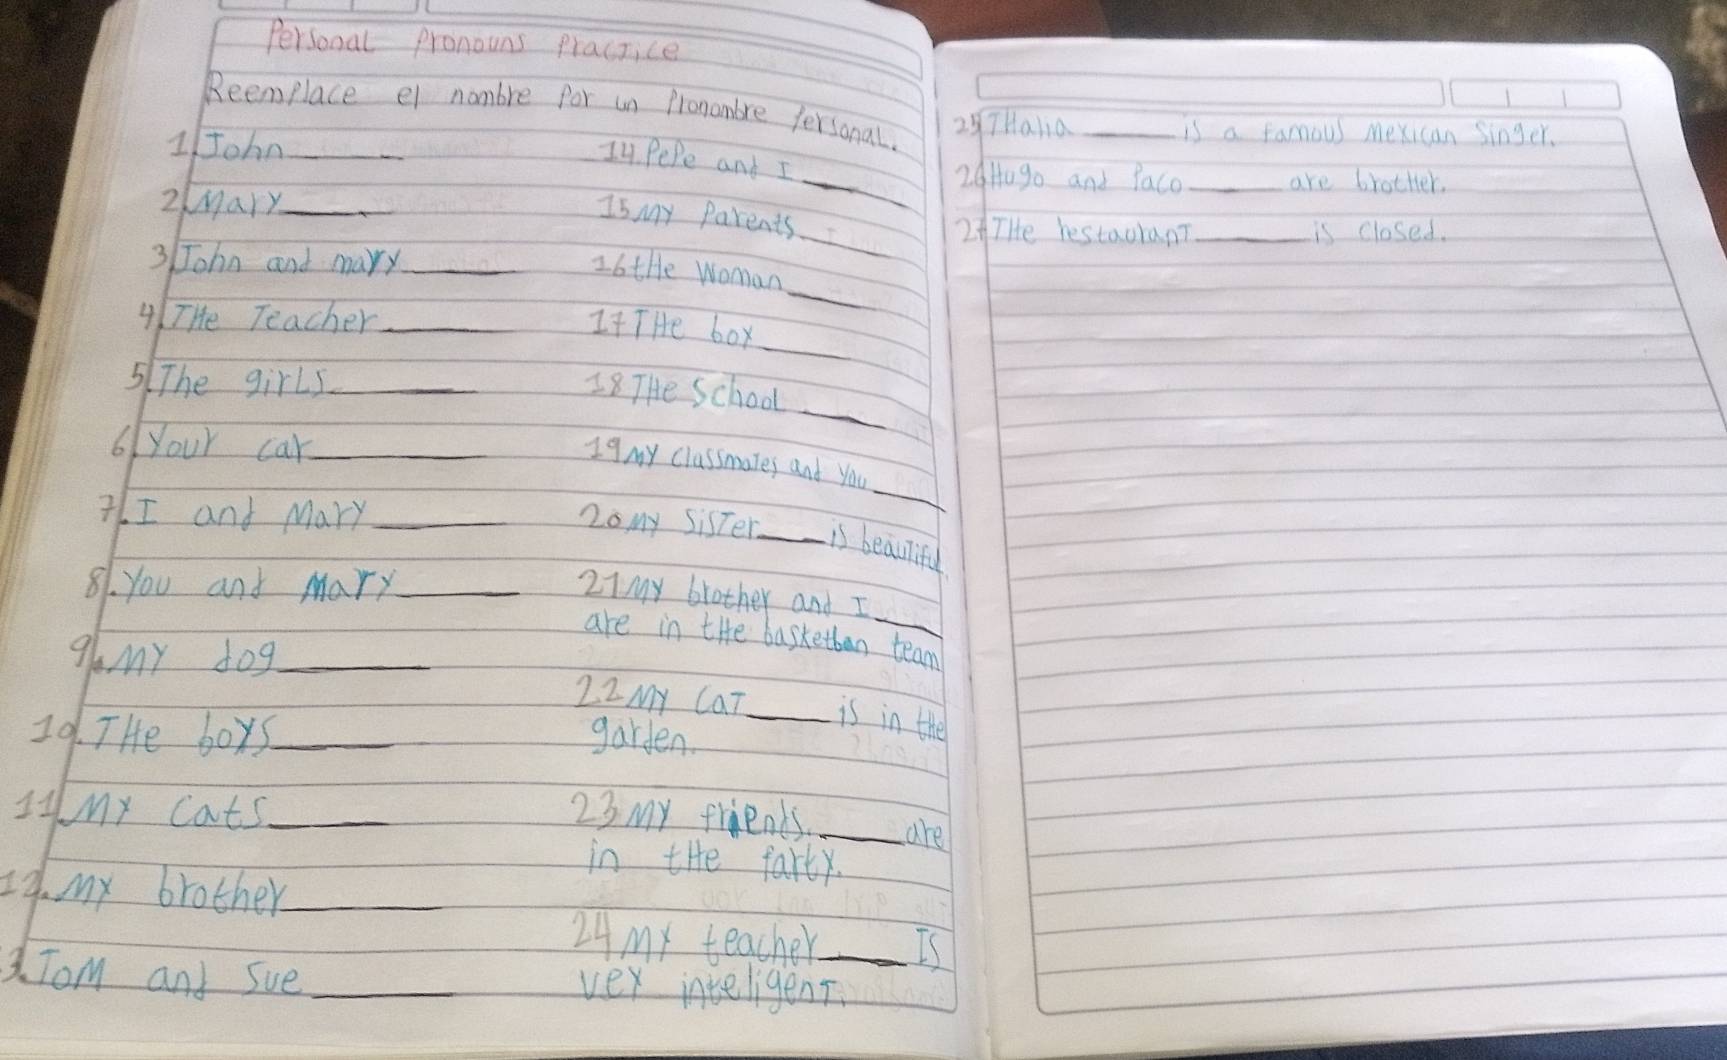 Personal Pronouns Practice
Reemplace el nombre por un Pronombre Personal.
1. John
2. Mary
3. John and mary
4. THe Teacher
5. The girls
6. Your car
7. I and Mary
8. You and Mary
9. My dog
10. THe boys
11. My cats
12. My brother
3. Tom and Sue
14. Pepe and I
15 My Parents
16 tHe Woman
17 THe box
18 THe School
19 My classmates and you
20 My Sister is beautiful.
21 My brother and I
are in tHe basketban team
22 My CaT is in tHe
garden.
23 My friends. are
in tHe party.
24 My teacher Is
vey inteligent.
25 THalia is a famous Mexican Singer.
26 Hugo and Paco are brotHer.
27 THe restaurant is closed.